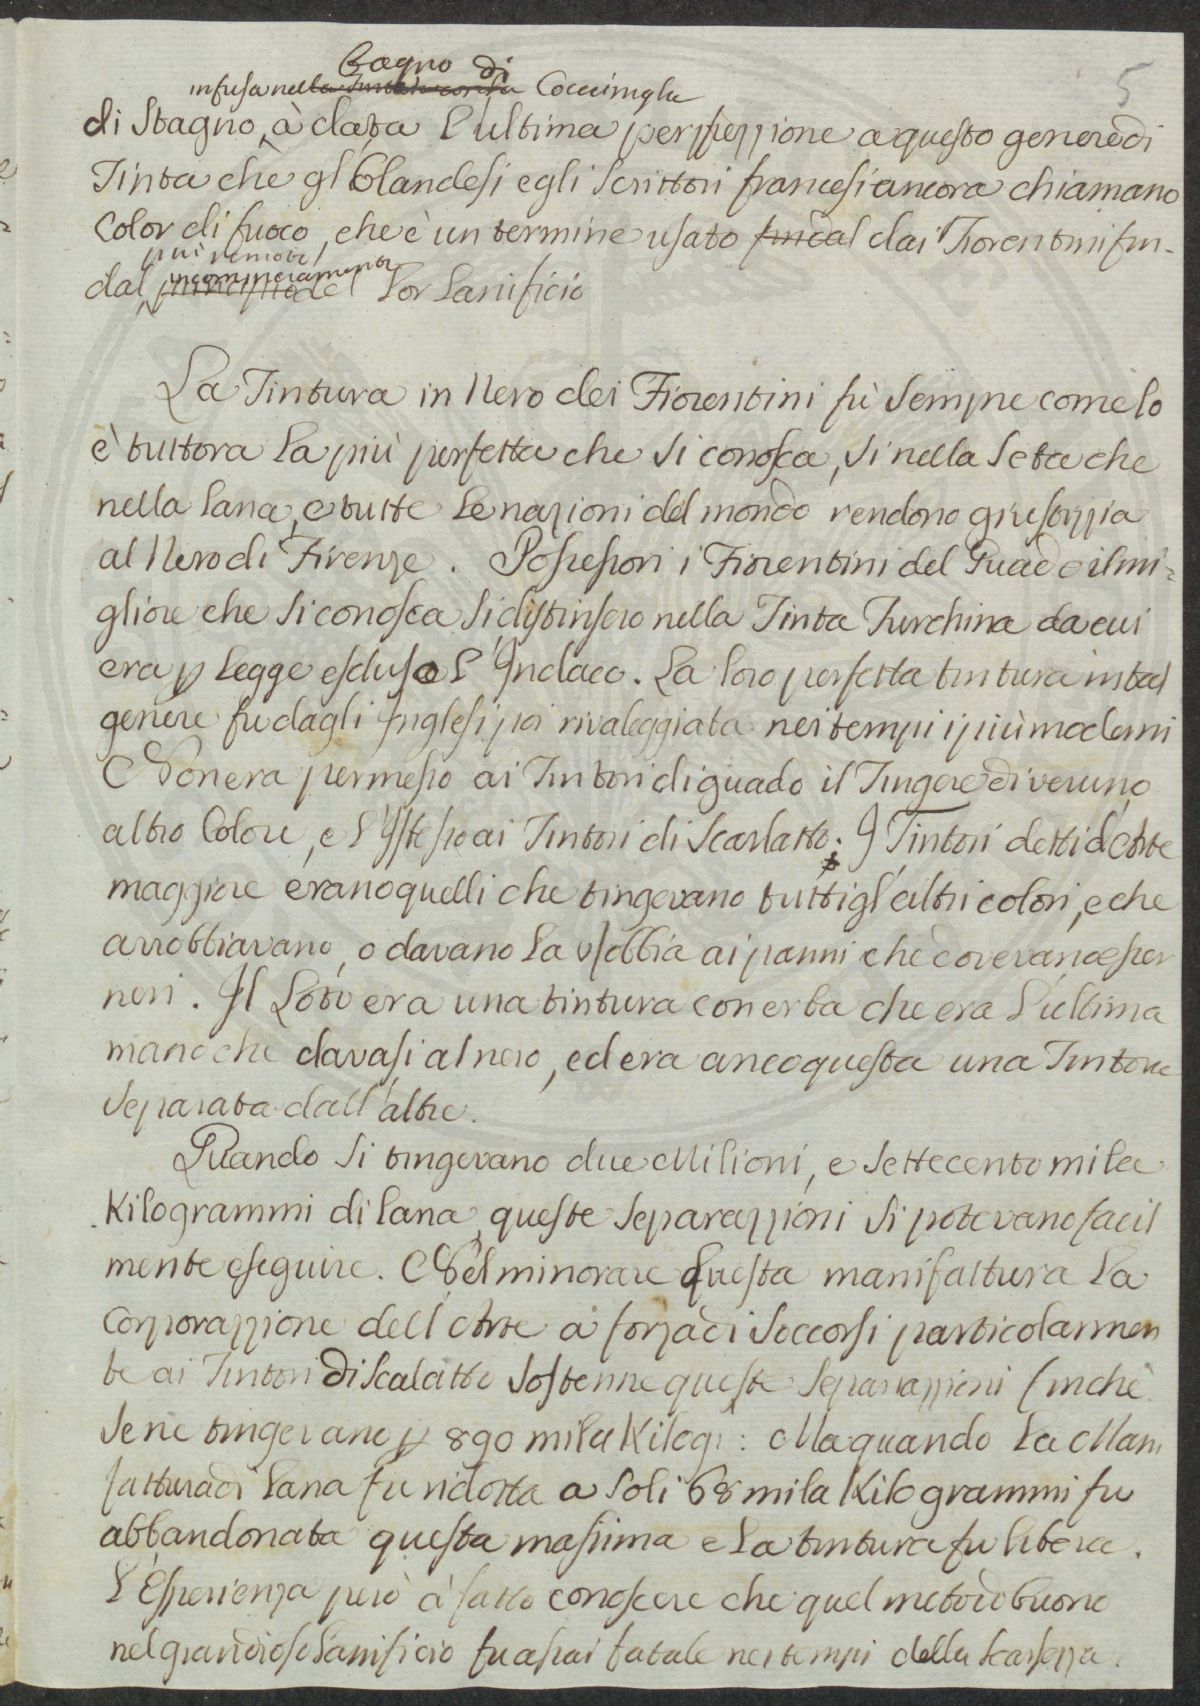 5
Bagno di
infusa nella Tinta con la Cocciniglia
di Stagno, à data l'ultima perffezzione a questo genere di
Tinta chè gl'Olandesi e gli Scrittori francesi ancora chiamano
Color di fuoco, che è un termine usato fin dal dai Fiorentini fin-
più remoto
incomminciamento
dal principio del lor Lanificio
La Tintura in Nero dei Fiorentini fù sempre come lo
è tuttora la più perfetta che si conosca, si nella Seta che
nella lana, e tutte le nazioni del mondo rendono giustizzia
al Nero di Firenze. Possessori i Fiorentini del Guado il mi-
gliore che si conosca si distinsero nella Tinta Turchina da cui
era p Legge escluso l'Indaco. La loro perfetta tintura in tal
genere fu dagli Inglesi poi rivaleggiata nei tempi i più moderni
Non era permesso ai Tintori di guado il Tingere di veruno
altro Colore, e l'istesso ai Tintori di Scarlatto. I Tintori detti d'Arte
maggiore erano quelli che tingevano tutti gl'altri colori, e che
arrobbiavano, o davano la robbia ai panni che dovevano esser
neri. Il Loto era una tintura con erba che era l'ultima
mano che davasi al nero, ed era anco questa una Tintoria
separata dall'altre.
Quando si tingevano due Milioni, e Settecento mila
Kilogrammi di lana, queste separazzioni si potevano facil
mente eseguire. Nel minorare questa manifattura la
Corporazzione dell'Arte a forza di Soccorsi particolarmen
te ai Tintori di Scalatto sostenne queste separazzioni finchè
se ne tingevano p 890 mila Kilogr: Ma quando la Mani
fattura di lana fu ridotta a soli 68 mila Kilogrammi fu
abbandonata questa massima e la tintura fu libera.
L'Esperienza però à fatto conoscere che quel metodo buono
nel grandioso Lanificio fu assai fatale nei tempi della scarsezza.